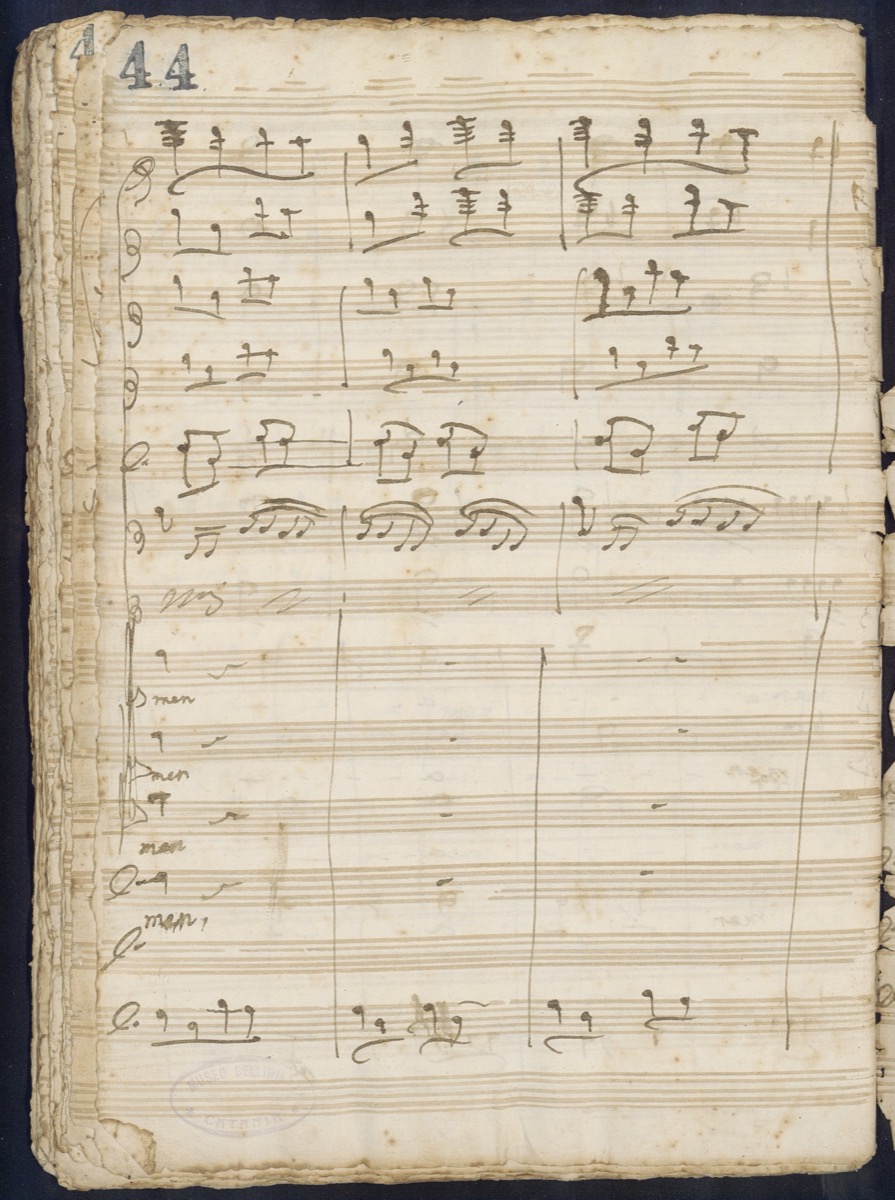 4
44
men
men
men
men,
MUSEO BELLINIANO
CATANIA